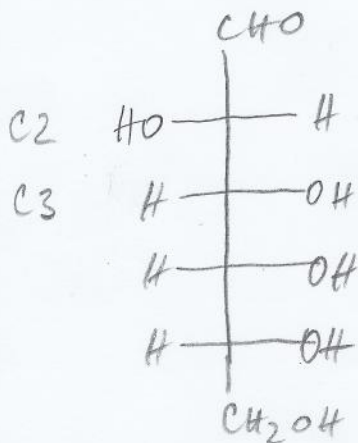 CHO
C2 HO H
C3 H OH
H OH
H OH
CH2OH